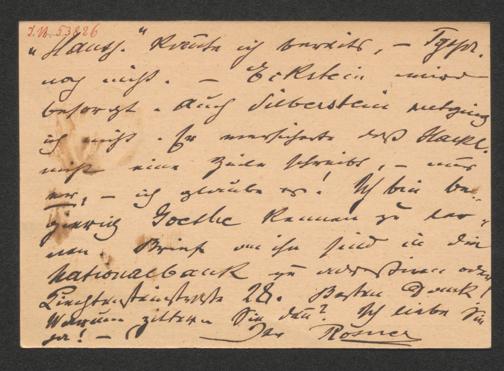 I.N. 53886
„Hansj." kannte ich bereits, –
noch nicht. – Eckstein wird
besorgt. Auch Silberstein
ich nicht. Er versicherte daß
nicht eine Zeile schreibt, – nur
er, – ich glaube es! Ich bin be-
gierig Goethe kennen zu ler-
nen. Briefe an ihn sind in die
Nationalbank zu adressiren oder
Liechtensteinstrasse 28. Besten Dank!
Warum zittern Sie denn? Ich liebe Sie
ja! – Ihr Rosner